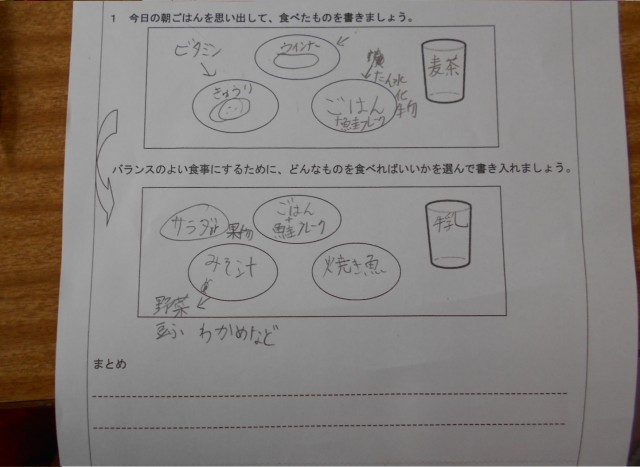 1 今日の朝ごはんを思い出して、食べたものを書きましょう。
ビタミン
ウインナー
きゅうり
たん水
化
物
ごはん
+鮭フレーク
麦茶
バランスのよい食事にするために、どんなものを食べればいいかを選んで書き入れましょう。
サラダ
果物
ごはん
+
鮭フレーク
牛乳
みそ汁
焼き魚
野菜
豆ふ わかめなど
まとめ